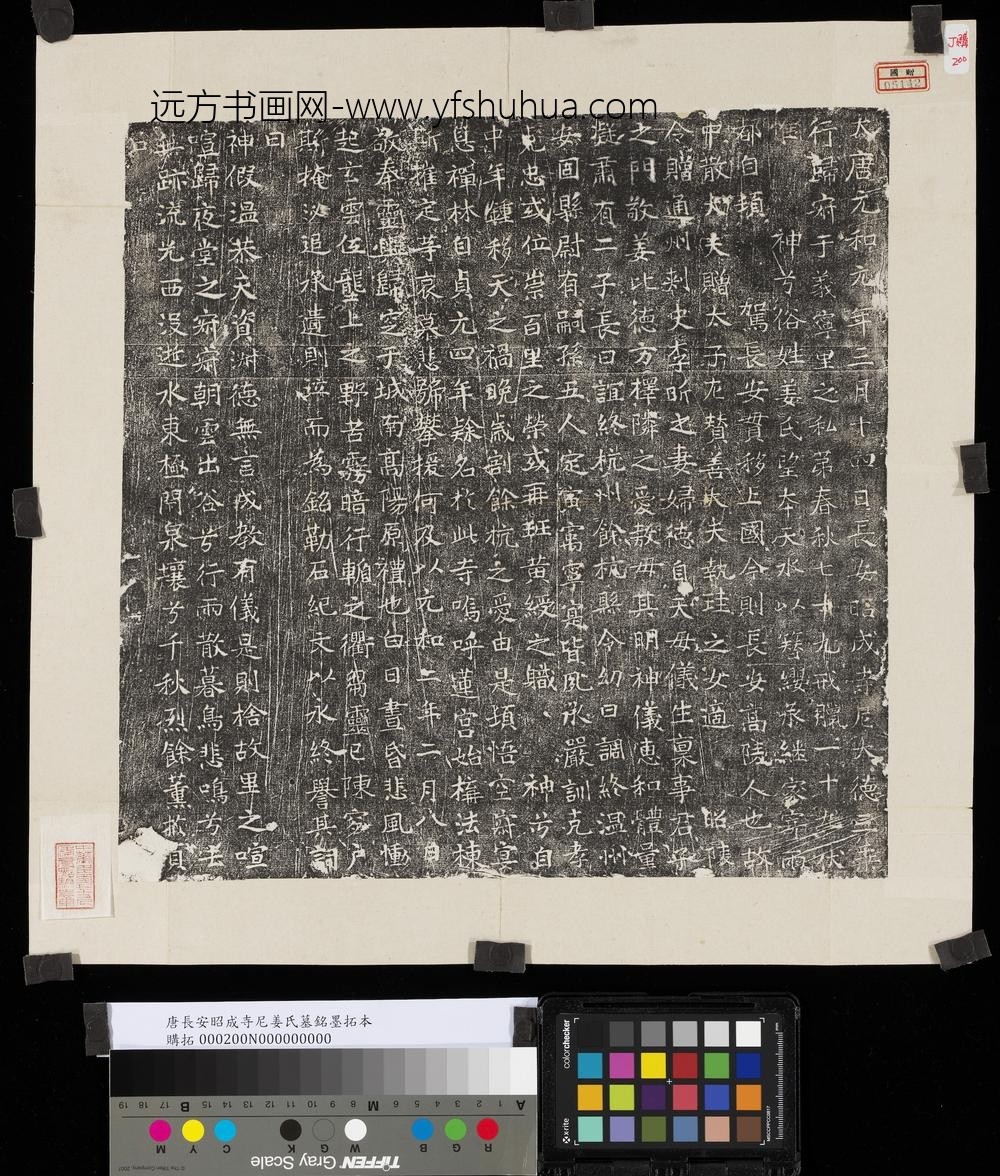 J購
200
國贈
05142
远方书画网-www.yfshuhua.com
大唐元和元年三月十四日長安昭成寺尼大德三乘
行歸府于義寧里之私第春秋七十九戒臘一十九伏
惟 神兮俗姓姜氏望本天水以簪纓承繼家寄兩
都自頃 駕長安貫移上國今則長安高陵人也故
中散大夫贈太子左贊善大夫執珪之女適 昭陵
令贈通州刺史李昕之妻婦德自天母儀生稟事君子
之門敬姜比德方擇隣之愛敦母其明神儀惠和體量
凝肅有二子長曰誼終杭州餘杭縣令幼曰調終溫州
安固縣尉有嗣孫五人定寅寓寧寔皆夙承嚴訓克孝
克忠或位崇百里之榮或再班黃綬之職 神兮自
中年鍾移天之禍晚歲割餘杭之愛由是頊悟空寂宴
息禪林自貞元四年隸名於此寺嗚呼蓮宮始構法棟
斯摧定等哀慕悲號攀援何及以元和二年二月八日
敬奉靈輿歸窆于城南高陽原禮也白日晝昏悲風慟
起玄雲低壟上之野苦霧暗行輀之衢爲靈已陳家戶
聊掩泌追承遺則琫而為銘勒石紀文以永終譽其詞
曰
神假溫恭天資淑德無言成教有儀是則捨故里之喧
喧歸夜堂之寂寂朝雲出谷兮行雨散暮鳥悲鳴兮去
無跡流光西沒逝水東極閇泉壤兮千秋烈餘薰於
唐長安昭成寺尼姜氏墓銘墨拓本
購拓 000200N000000000
colorchecker
x-rite
mm
MSCCPPCC0817
TIFFEN Gray Scale
© The Tiffen Company, 2007
A 1 2 3 4 5 6 M 8 9 10 11 12 13 14 15 B 17 18 19
R G B W G K C Y M